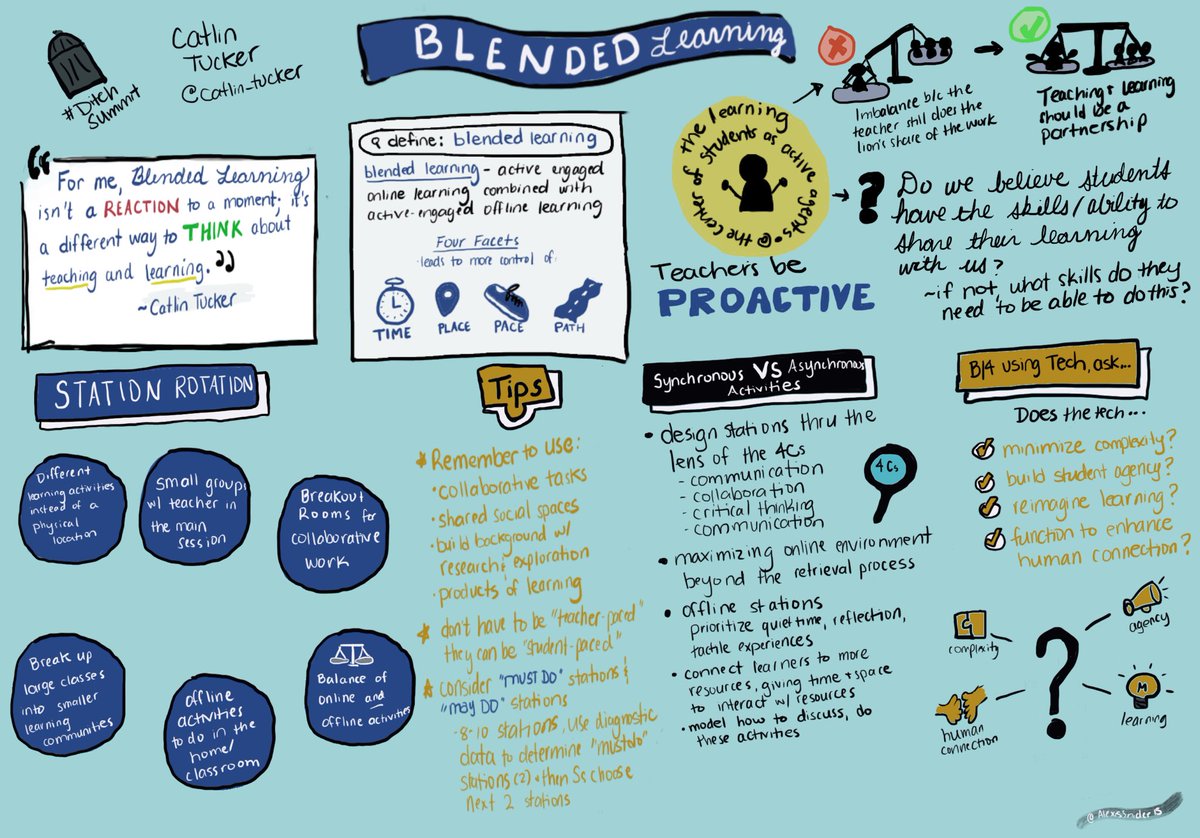 #Ditch
Summit
Catlin
Tucker
@catlin_tucker
BLENDED Learning
"For me, Blended Learning
isn't a REACTION to a moment, it's
a different way to THINK about
teaching and learning."
~Catlin Tucker
define: blended learning
blended learning - active engaged
online learning combined with
active-engaged offline learning
Four Facets
·leads to more control of·
TIME
PLACE
PACE
PATH
the learning
of students as active
agents @ the center
Teachers be
PROACTIVE
Imbalance b/c the
teacher still does the
lion's share of the work
Teaching + Learning
should be a
partnership
? Do we believe students
have the skills/ability to
share their learning
with us?
~if not, what skills do they
need to be able to do this?
STATION ROTATION
Different
learning activities
instead of a
physical
location
small groups
w/ teacher in
the main
session
Breakout
Rooms for
collaborative
work
Break up
large classes
into smaller
learning
communities
offline
activities
to do in the
home/
classroom
Balance of
online and
offline activities
Tips
Remember to use:
·collaborative tasks
·shared social spaces
·build background w/
research & exploration
·products of learning
don't have to be "teacher-paced"
they can be "student-paced"
consider "MUST DO" stations &
"may DO" stations
-8-10 stations, use diagnostic
data to determine "must do"
stations (2) + then Ss choose
next 2 stations
Synchronous VS Asynchronous
Activities
• design stations thru the
lens of the 4Cs
- communication
- collaboration
- critical thinking
- communication
4Cs
• maximizing online environment
beyond the retrieval process
• offline stations
prioritize quiet time, reflection,
tactile experiences
• connect learners to more
resources, giving time + space
to interact w/ resources
• model how to discuss, do
these activities
B/4 using Tech, ask...
Does the tech...
minimize complexity?
build student agency?
reimagine learning?
function to enhance
human connection?
complexity
agency
?
human
connection
learning
@AlexisSnider15